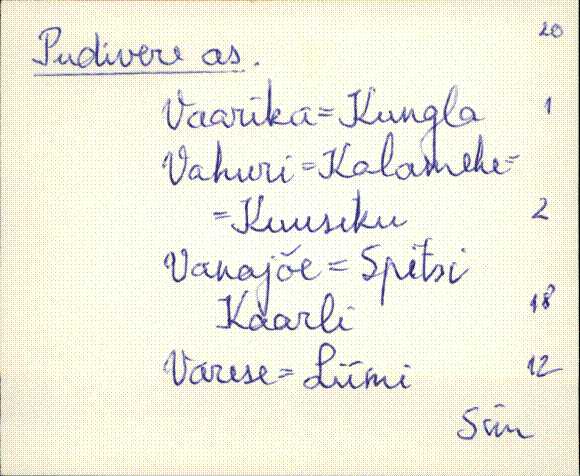 20
Pudivere as.
Vaarika = Kungla 1
Vahuri = Kalamehe =
= Kuusiku 2
Vanajõe = Spitsi
Kaarli 18
Varese = Liimi 12
Sim